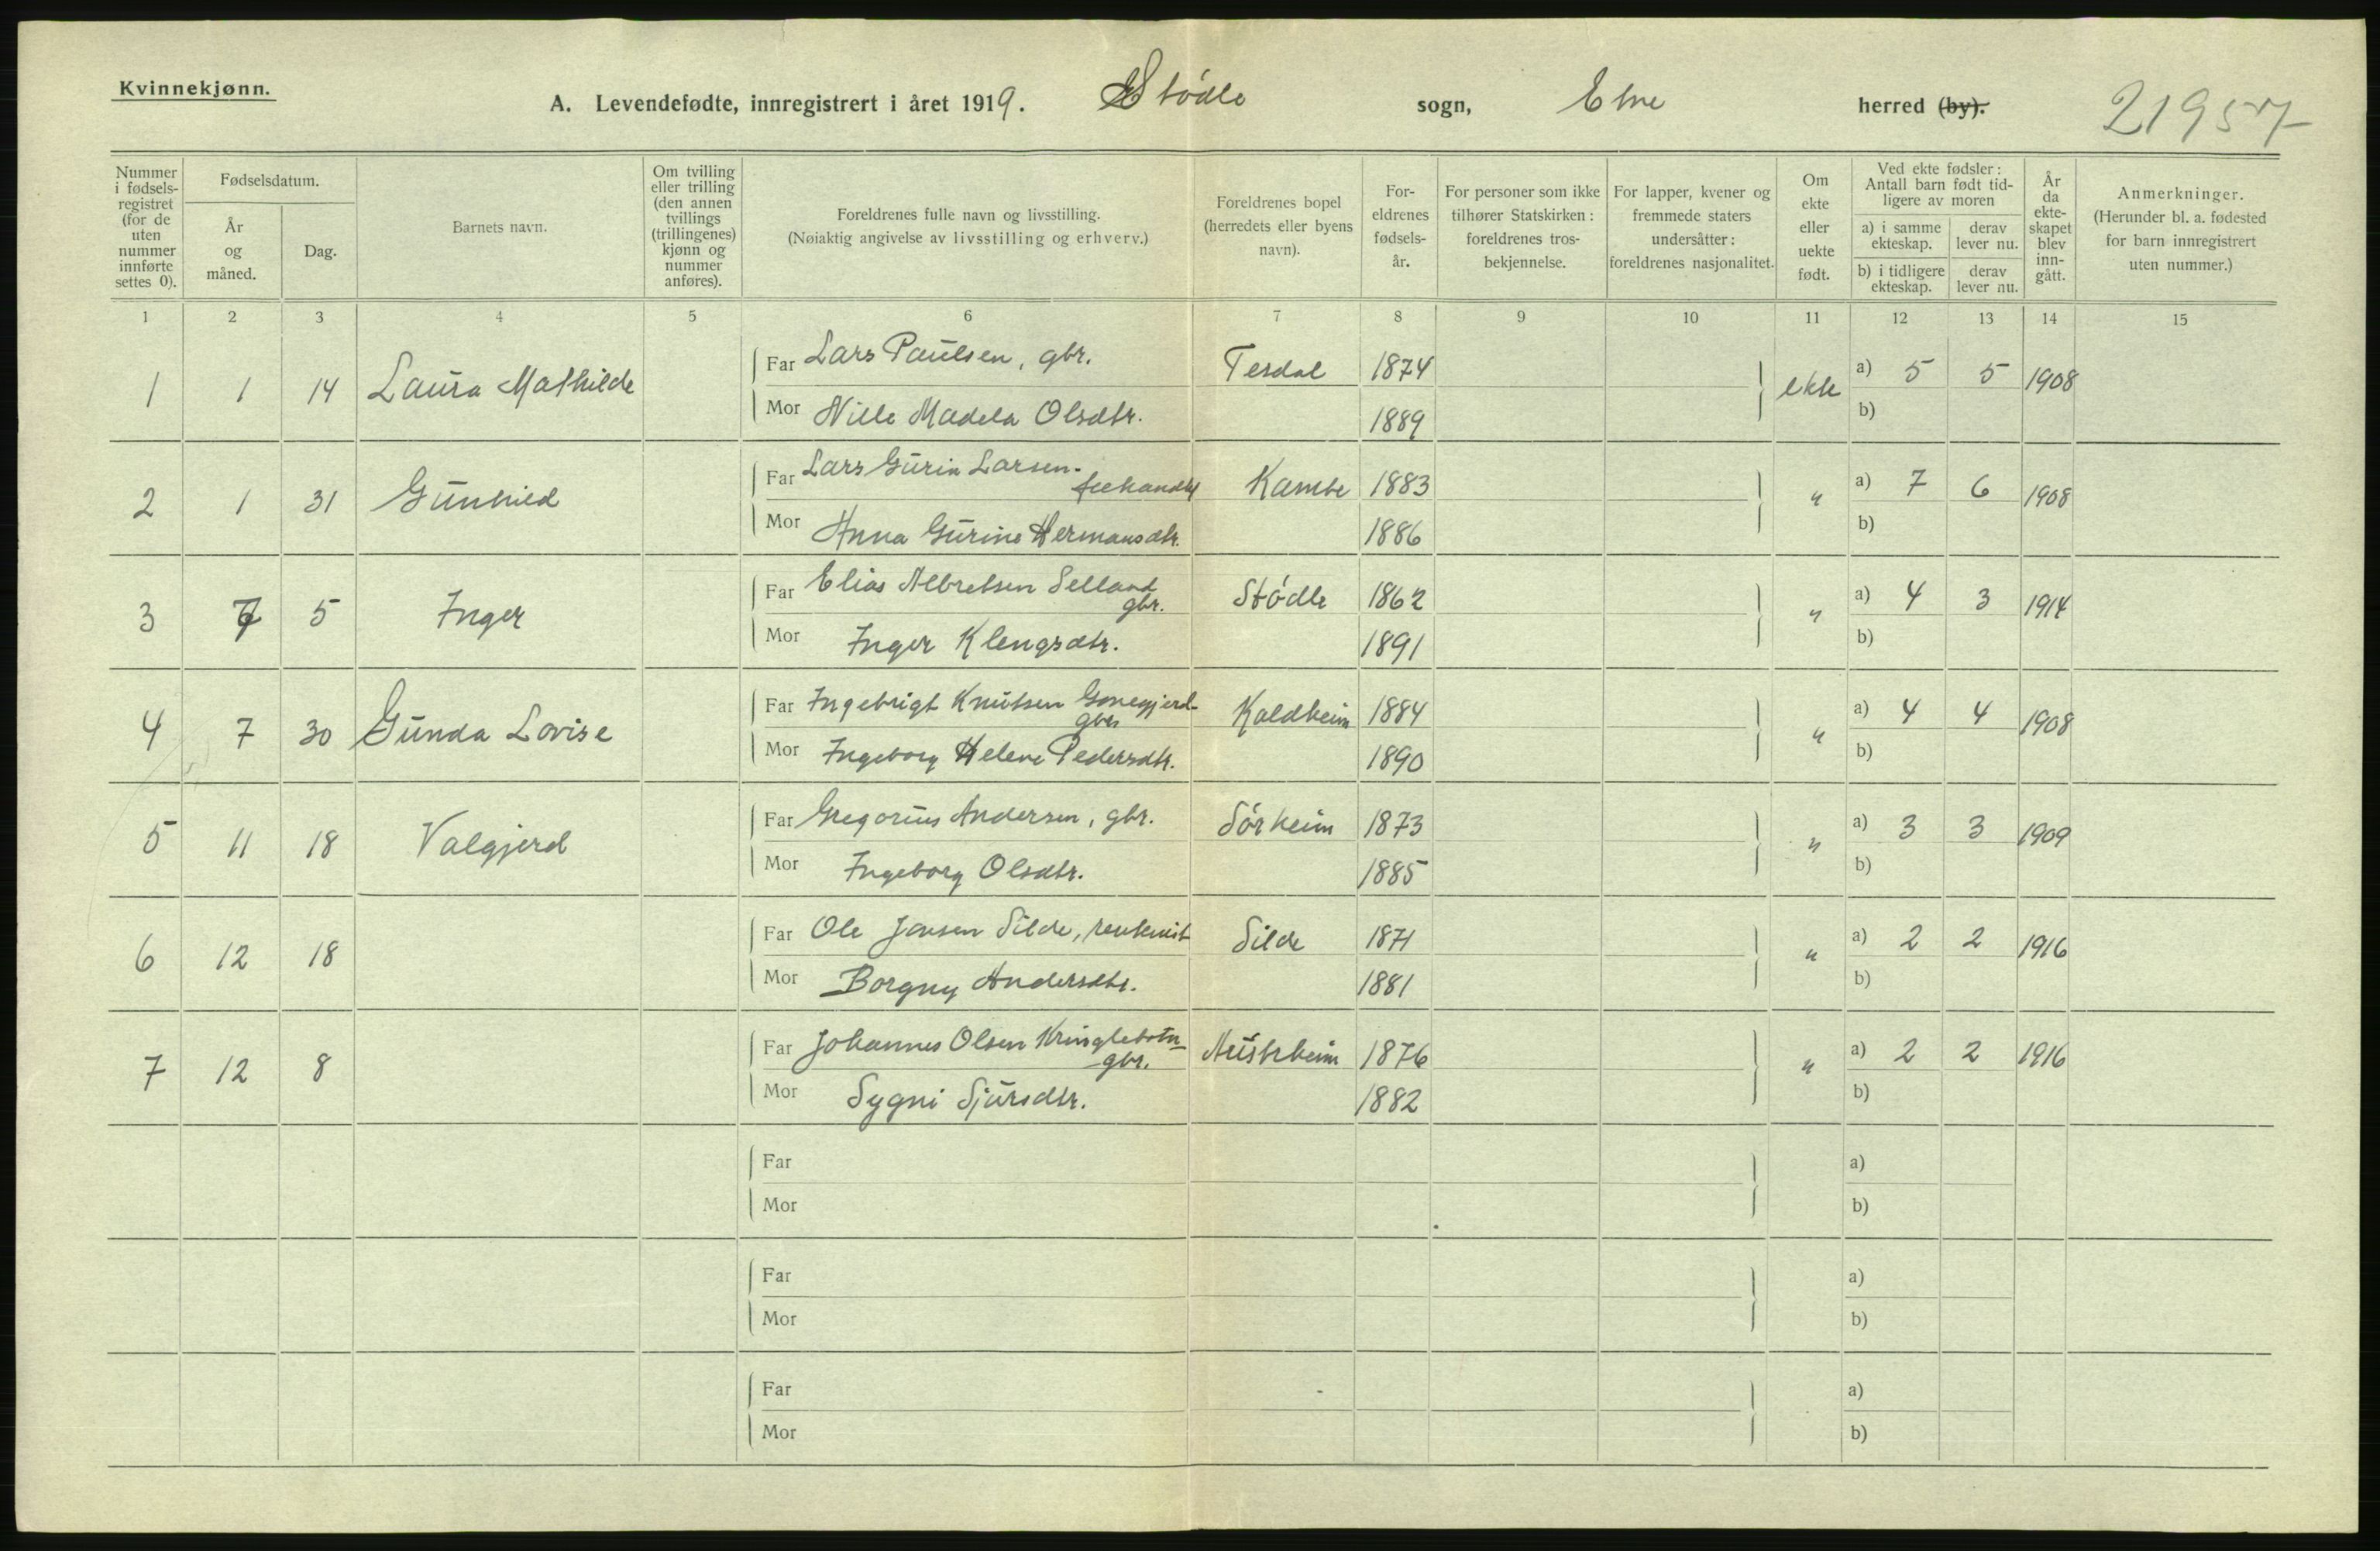 Kvinnekjønn.
A. Levendefødte, innregistrert i året 1919. Stödle sogn, Etne herred (by). 21957
Nummer i fødsels-registret (for de uten nummer innførte settes 0).
Fødselsdatum.
År og måned.
Dag.
Barnets navn.
Om tvilling eller trilling (den annen tvillings (trillingenes) kjønn og nummer anføres).
Foreldrenes fulle navn og livsstilling.
(Nøiaktig angivelse av livsstilling og erhverv.)
Foreldrenes bopel (herredets eller byens navn).
For-eldrenes fødsels-år.
For personer som ikke tilhører Statskirken: foreldrenes tros-bekjennelse.
For lapper, kvener og fremmede staters undersåtter: foreldrenes nasjonalitet.
Om ekte eller uekte født.
Ved ekte fødsler: Antall barn født tid-ligere av moren
a) i samme ekteskap.
derav lever nu.
b) i tidligere ekteskap.
derav lever nu.
År da ekte-skapet blev inn-gått.
Anmerkninger.
(Herunder bl. a. fødested for barn innregistrert uten nummer.)
1 2 3 4 5 6 7 8 9 10 11 12 13 14 15
1 1 14 Laura Mathilde Far Lars Paulsen, gbr. Tesdal 1874 ekte a) 5 5 1908
Mor Nille Madela Olsdtr. 1889 b)
2 1 31 Gunhild Far Lars Gurin Larsen - Kambe 1883 " a) 7 6 1908
Mor Anna Gurine Hermansdtr. 1886 b)
3 7 5 Inger Far Elias Albretsen Selland Stödle 1862 " a) 4 3 1914
gbr.
Mor Inger Klengsdtr. 1891 b)
4 7 30 Gunda Lovise Far Ingebrigt Knutsen Kaldheim 1884 " a) 4 4 1908
gbr.
Mor Ingeborg Helene Pedersdtr. 1890 b)
5 11 18 Valgjerd Far Gregorius Andersen, gbr. Sörheim 1873 " a) 3 3 1909
Mor Ingeborg Olsdtr. 1885 b)
6 12 18 Far Ole Jansen Silde, rentenist Silde 1871 " a) 2 2 1916
Mor Borgny Andersdtr. 1881 b)
7 12 8 Far Johannes Olsen Kringlebotn - Austrheim 1876 " a) 2 2 1916
gbr.
Mor Sygni Sjursdtr. 1882 b)
Far a)
Mor b)
Far a)
Mor b)
Far a)
Mor b)